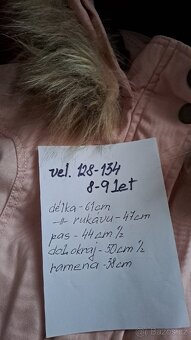 vel. 128-134
8-9 let
délka - 61cm
-"- rukávu - 47cm
pas - 44cm ½
dol. okraj - 50cm ½
ramena - 38cm